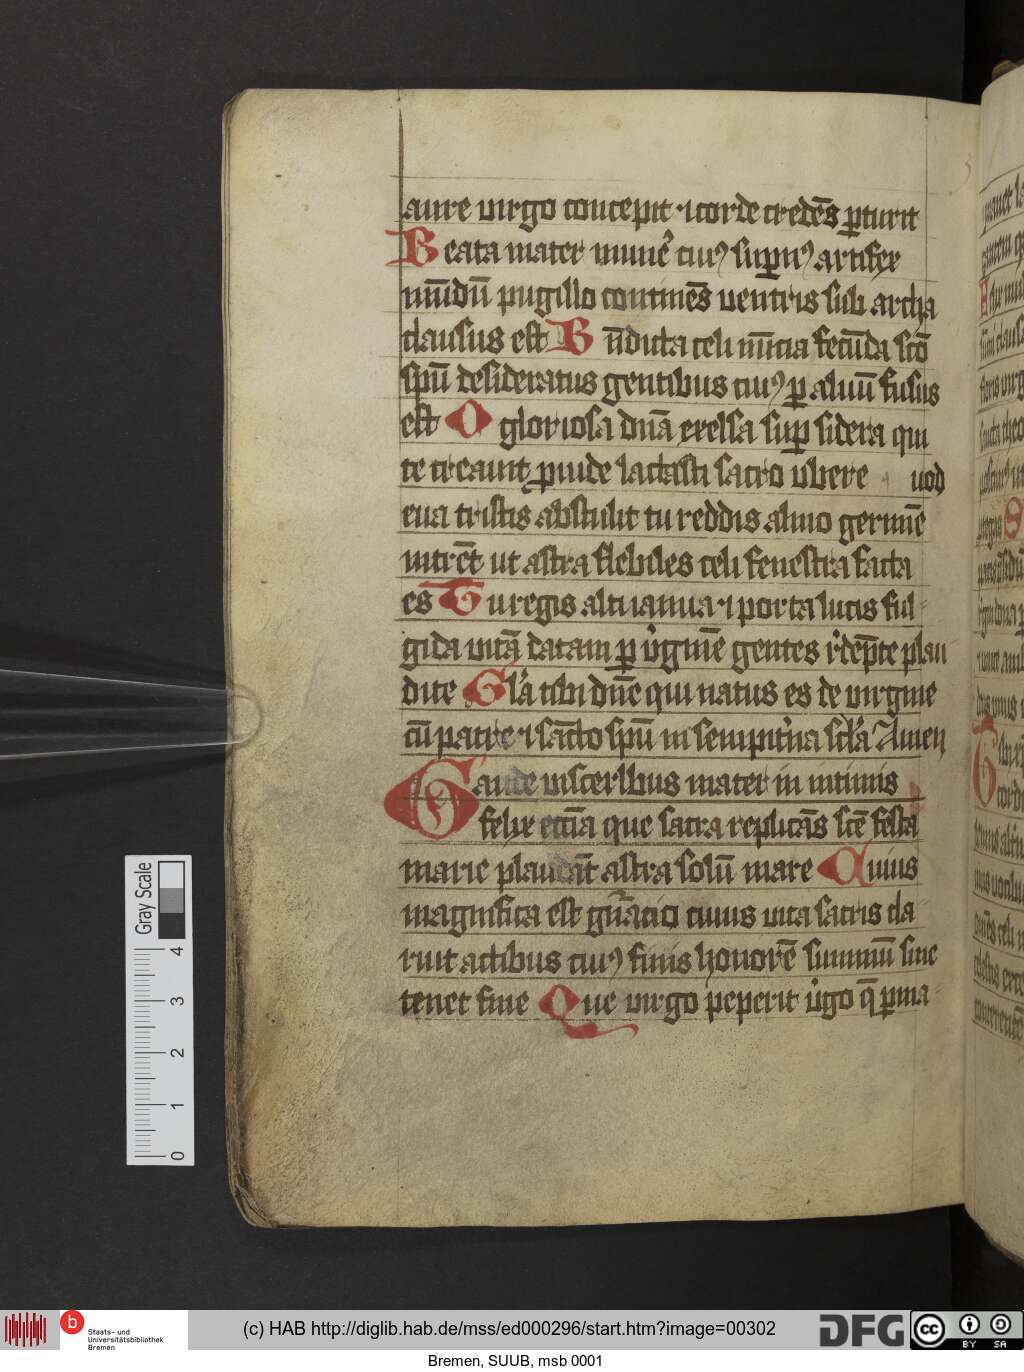 aure virgo concepit ⁊ corde credēs ꝑturit
Beata mater munē cuiꝰ suꝑnꝰ artifex
mūdū pugillo continēs ventris sub archa
clausus est Bn̄dicta celi nūcia fecūda scō
spū desideratus gentibus cuiꝰ ꝑ aluū fusus
est O gloriosa dn̄a excelsa suꝑ sidera qui
te creauit ꝓuide lactasti sacro vbere uod
eua tristis abstulit tu reddis almo germīe
intrēt ut astra flebiles celi fenestra facta
es Tu regis alti ianua ⁊ porta lucis ful
gida vitā datam ꝑ v̓gīnē gentes r̓dēpte plau
dite Gl̓a tibi dn̄e qui natus es de virgine
cū patre ⁊ sancto spū in sempit̓na scl̓a Amen
Gaude visceribus mater in intimis
felix ecc̄ia que sacra replicās scē festa
marie plaudāt astra solū mare Cuius
magnifica est gn̓acio cuius vita sacris cla
ruit actibus cuiꝰ finis honorē summū sine
tenet fine Que virgo peperit v̓go q̄ ꝑma
Gray Scale
4
3
2
1
0
b
Staats- und
Universitätsbibliothek
Bremen
(c) HAB http://diglib.hab.de/mss/ed000296/start.htm?image=00302
DFG
cc BY SA
Bremen, SUUB, msb 0001